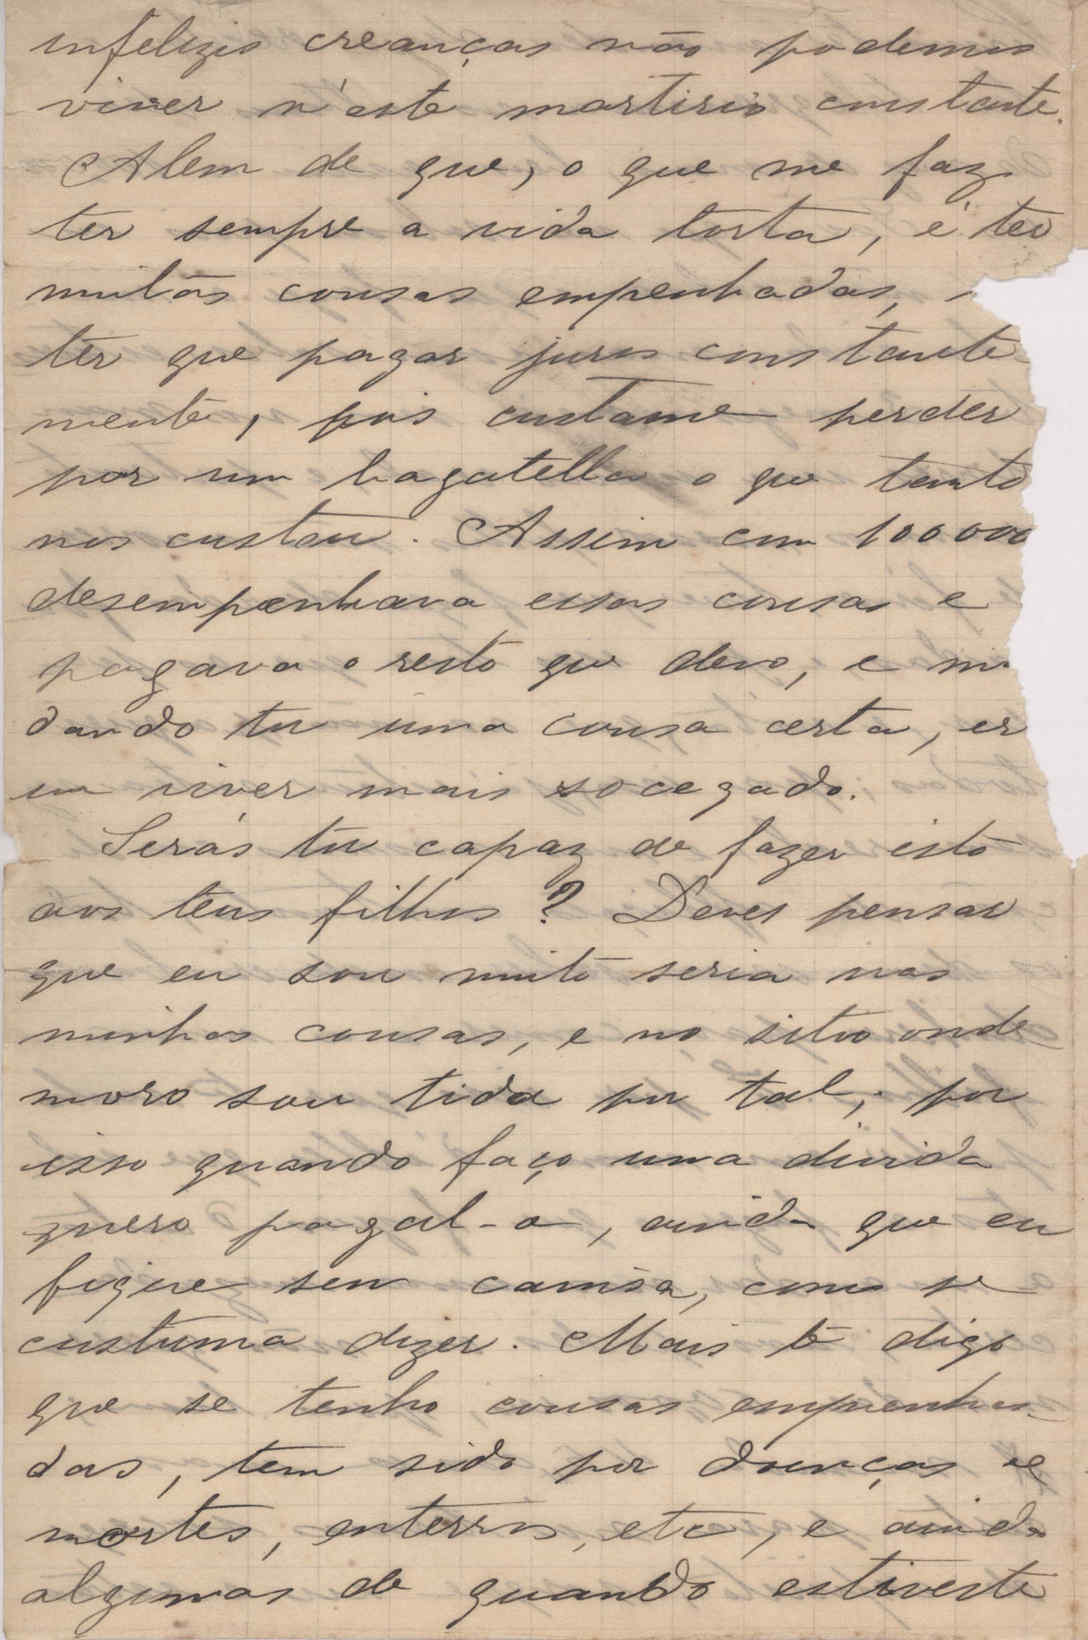 infelizes creanças não podemos
viver n'este martirio constante.
Alem de que, o que me faz
ter sempre a vida torta, é ter
muitas cousas empenhadas,
ter que pagar juros constante
mente, pois custame perder
por um bagatella o que tanto
nos custou. Assim com 100000
desempenhava essas cousas e
pagava o resto que devo, e
dando tu uma cousa certa, er
um viver mais socegado.
Serás tu capaz de fazer isto
aos teus filhos? Deves pensar
que eu sou muito seria nas
minhas cousas, e no sitio onde
moro sou tida por tal; por
isso quando faço uma divida
quero pagal-a, ainda que eu
fique sem camisa, como se
custuma dizer. Mais te digo
que se tenho cousas empenha-
das, tem sido por doenças e
mortes, enterros, etc, e ainda
algumas de quando estiveste